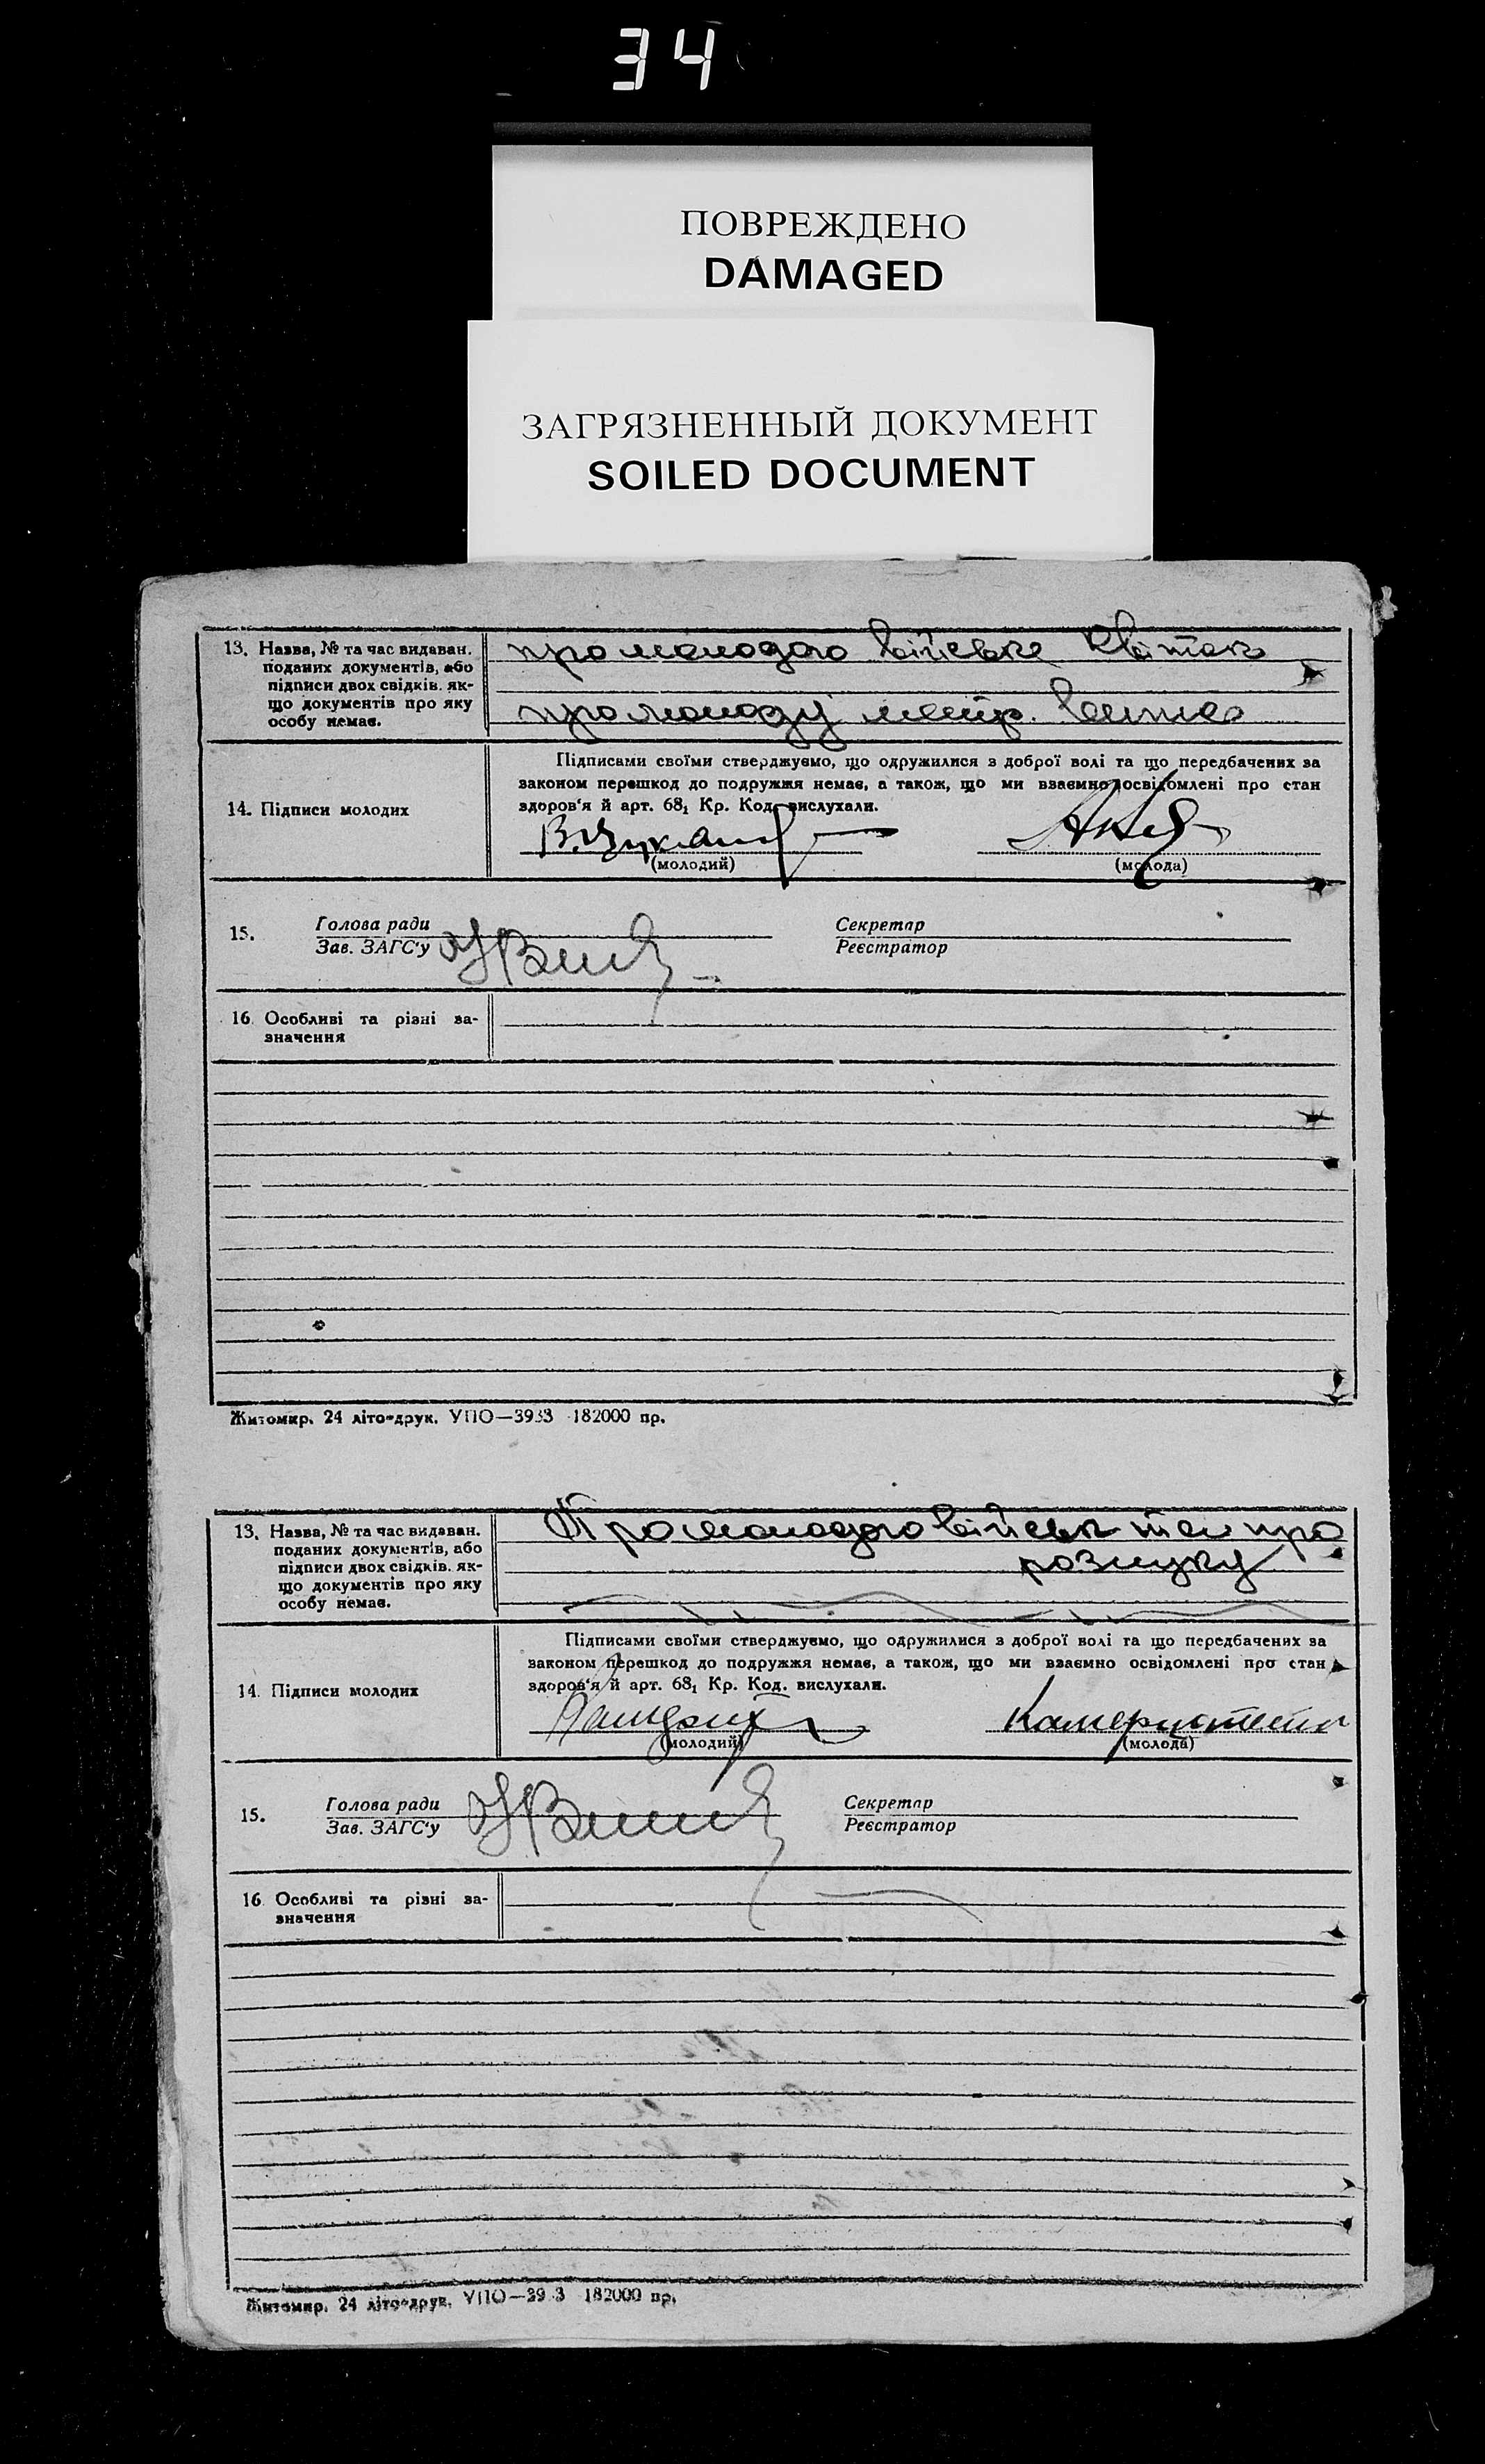 34
ПОВРЕЖДЕНО
DAMAGED
ЗАГРЯЗНЕННЫЙ ДОКУМЕНТ
SOILED DOCUMENT
13. Назва, № та час видаван.
поданих документів, або
підписи двох свідків. як-
що документів про яку
особу немає.
про молодого військ квиток
про молоду метр. витяг
14. Підписи молодих
Підписами своїми стверджуємо, що одружилися з доброї волі та що передбачених за
законом перешкод до подружжя немає, а також, що ми взаємно освідомлені про стан
здоров'я й арт. 68₁ Кр. Код. вислухали.
(молодий)
(молода)
15. Голова ради
Зав. ЗАГС'у
Секретар
Реєстратор
16. Особливі та різні за-
значення
Житомир. 24 літо-друк. УПО—3933 182000 пр.
13. Назва, № та час видаван.
поданих документів, або
підписи двох свідків. як-
що документів про яку
особу немає.
Про молодого військ про
розлуку
14. Підписи молодих
Підписами своїми стверджуємо, що одружилися з доброї волі та що передбачених за
законом перешкод до подружжя немає, а також, що ми взаємно освідомлені про стан
здоров'я й арт. 68₁ Кр. Код. вислухали.
(молодий)
Камерштейн
(молода)
15. Голова ради
Зав. ЗАГС'у
Секретар
Реєстратор
16 Особливі та різні за-
значення
Житомир. 24 літо-друк. УПО—39 3 182000 пр.